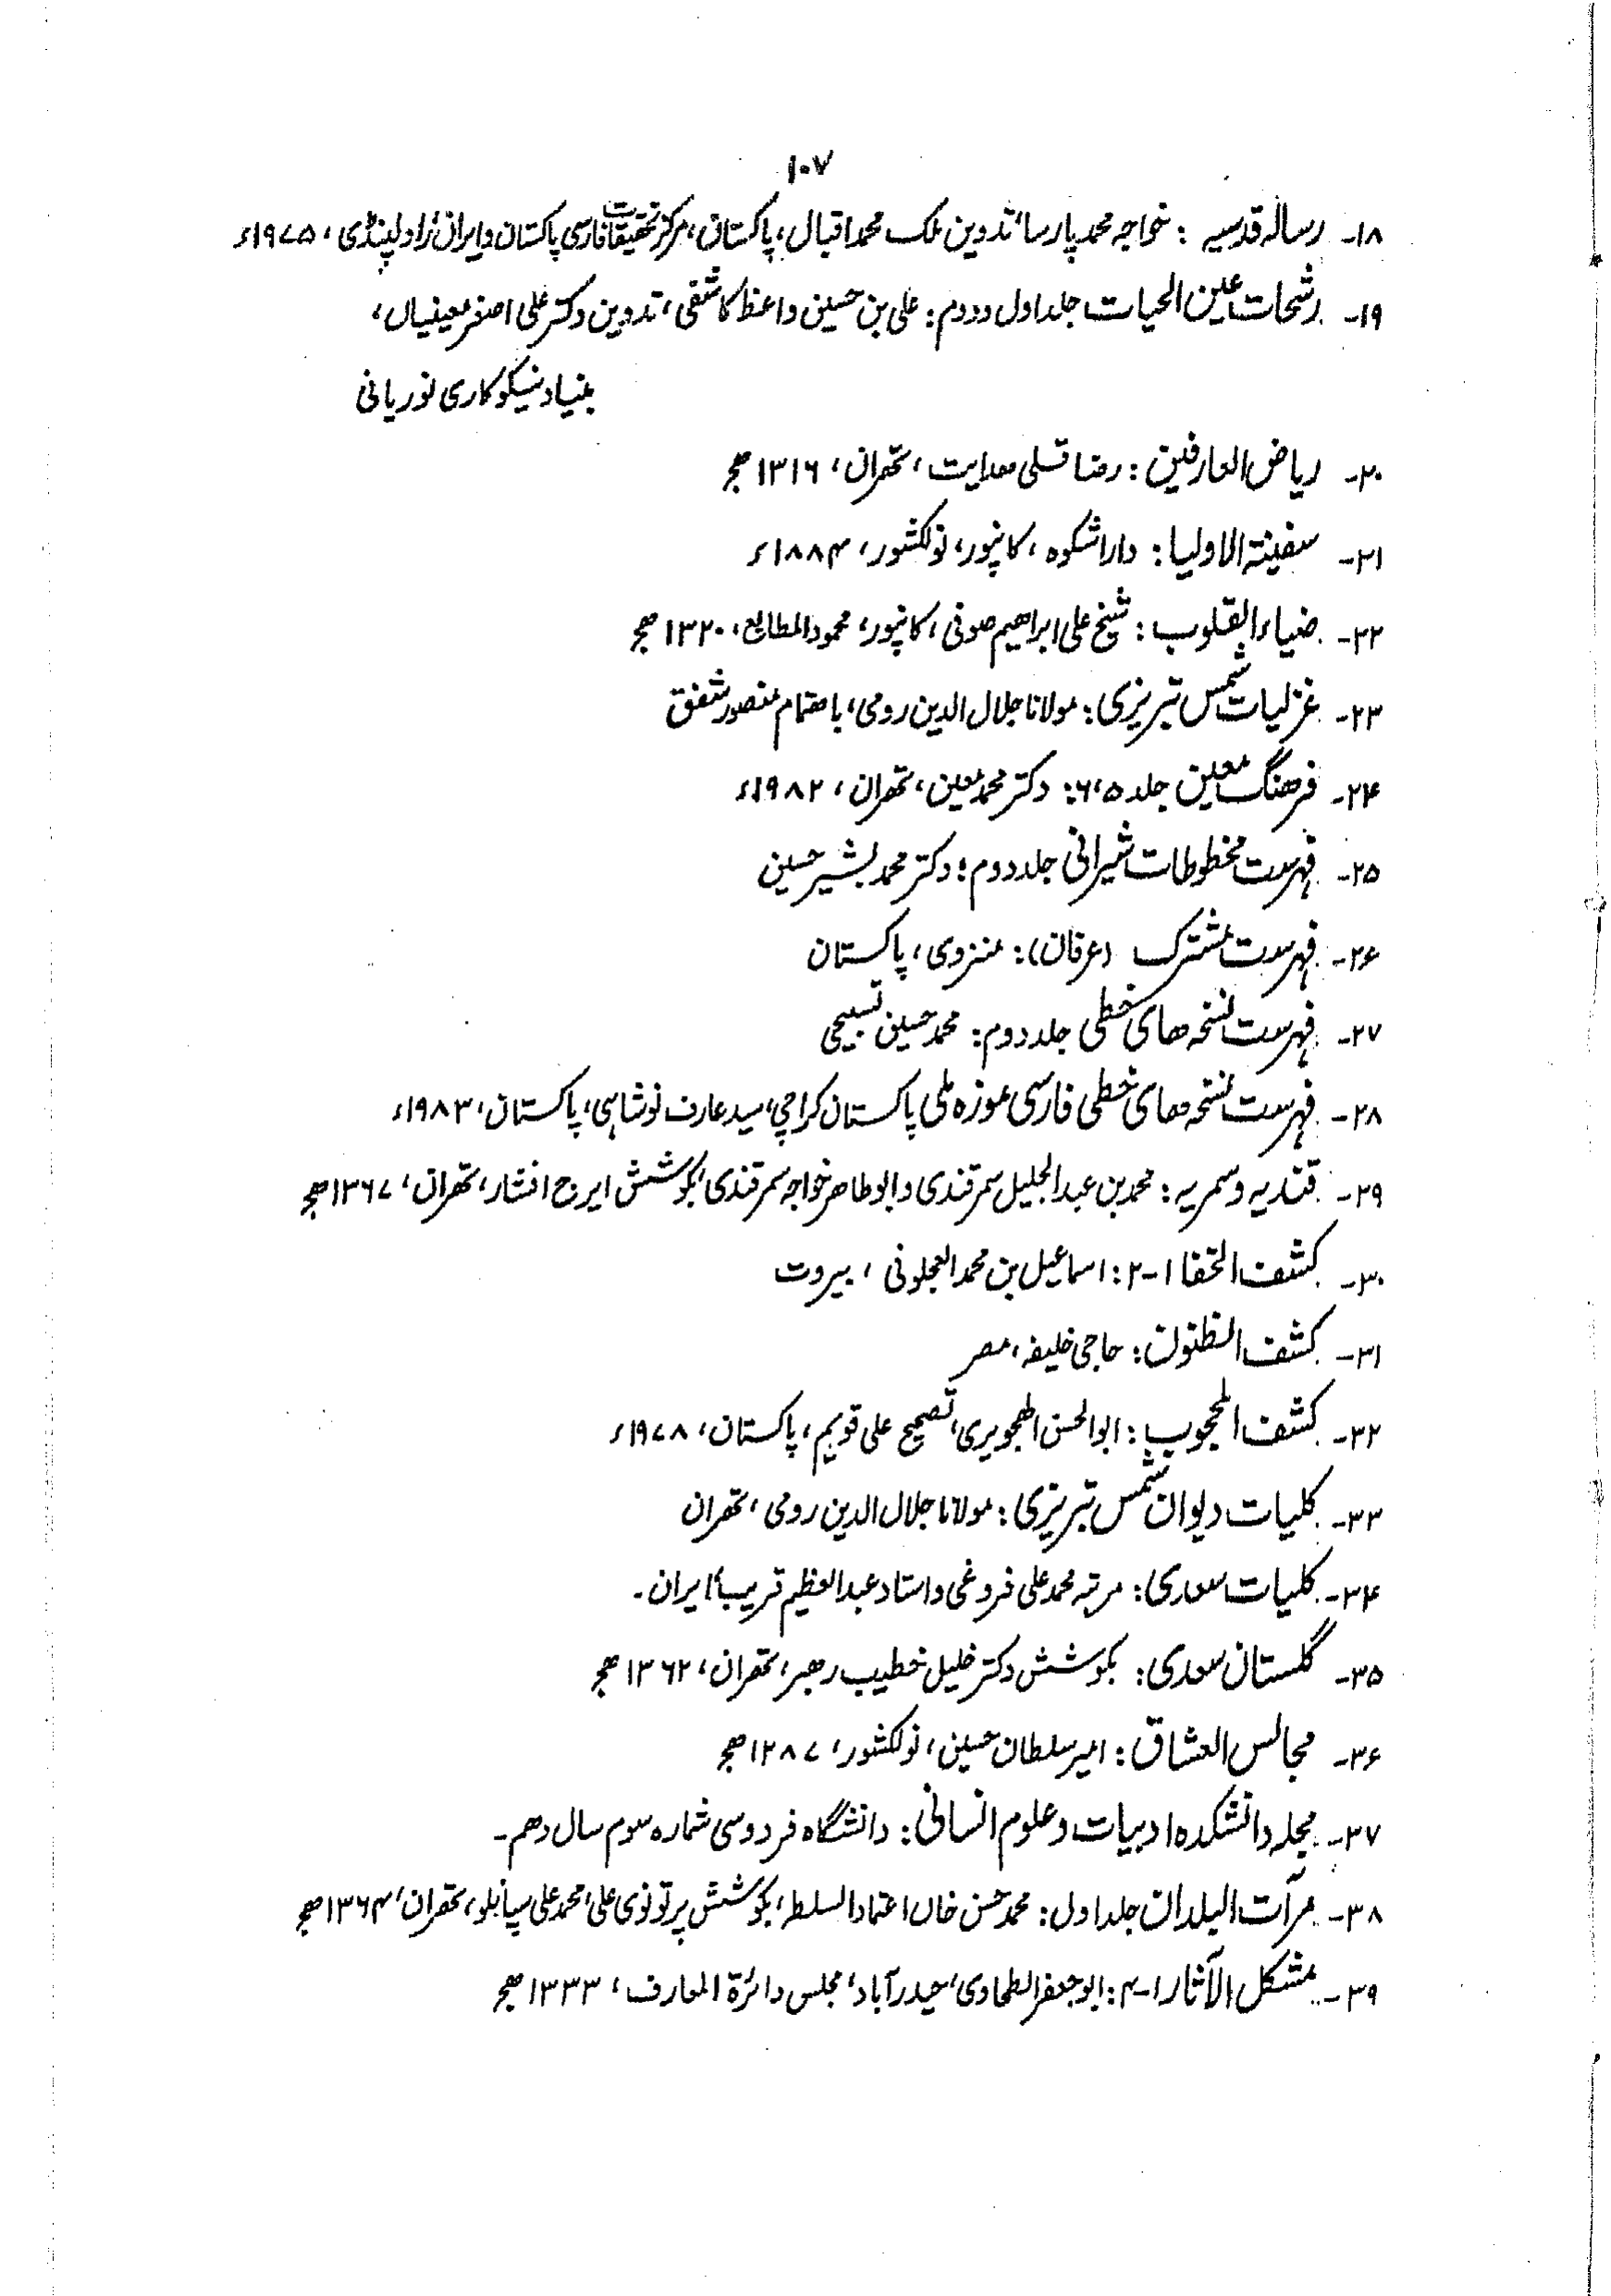 ۱۰۷
۱۸- رسالہ قدسیہ : خواجہ محمد پارسا، تدوین ملک محمد اقبال، پاکستان، مرکز تحقیقات فارسی پاکستان و ایران، راولپنڈی، ۱۹۷۵ء
۱۹- رشحات عین الحیات جلد اول و دوم : علی بن حسین واعظ کاشفی، تدوین دکتر علی اصغر معینیاں،
بنیاد نیکوکاری نوریانی
۲۰- ریاض العارفین : رضا قلی ھدایت، تھران، ۱۳۱۶ھجر
۲۱- سفینۃ الاولیا : داراشکوہ، کانپور، نولکشور، ۱۸۸۴ء
۲۲- ضیاء القلوب : شیخ علی ابراھیم صوفی، کانپور، محمود المطابع، ۱۳۲۰ھجر
۲۳- غزلیات شمس تبریزی : مولانا جلال الدین رومی، باھتمام منصور شفق
۲۴- فرھنگ معین جلد ۵،۶ : دکتر محمد معین، تھران، ۱۹۸۲ء
۲۵- فہرست مخطوطات شیرانی جلد دوم : دکتر محمد بشیر حسین
۲۶- فہرست مشترک (عرفان) : منزوی، پاکستان
۲۷- فہرست نسخہ ھای خطی جلد دوم : محمد حسین تسبیحی
۲۸- فہرست نسخہ ھای خطی فارسی موزہ ملی پاکستان کراچی، سید عارف نوشاہی، پاکستان، ۱۹۸۳ء
۲۹- قندیہ و سمریہ : محمد بن عبد الجلیل سمرقندی و ابو طاھر خواجہ سمرقندی، بکوشش ایرج افشار، تھران، ۱۳۶۷ھجر
۳۰- کشف الخفا ۱-۲ : اسماعیل بن محمد العجلونی، بیروت
۳۱- کشف الظنون : حاجی خلیفہ، مصر
۳۲- کشف المحجوب : ابو الحسن الھجویری، تصحیح علی قویم، پاکستان، ۱۹۷۸ء
۳۳- کلیات دیوان شمس تبریزی : مولانا جلال الدین رومی، تھران
۳۴- کلیات سعدی : مرتبہ محمد علی فروغی و استاد عبد العظیم قریب، ایران۔
۳۵- گلستان سعدی : بکوشش دکتر خلیل خطیب رھبر، تھران، ۱۳۶۲ھجر
۳۶- مجالس العشاق : امیر سلطان حسین، نولکشور، ۱۲۸۷ھجر
۳۷- مجلہ دانشکدہ ادبیات و علوم انسانی : دانشگاہ فردوسی شمارہ سوم سال دھم۔
۳۸- مرآت البلدان جلد اول : محمد حسن خاں اعتماد السلطہ، بکوشش پرتو نوی علی، محمد علی سپانلو، تھران، ۱۳۶۴ھجر
۳۹- مشکل الآثار ۱-۴ : ابو جعفر الطحاوی، حیدرآباد، مجلس دائرۃ المعارف، ۱۳۳۳ھجر